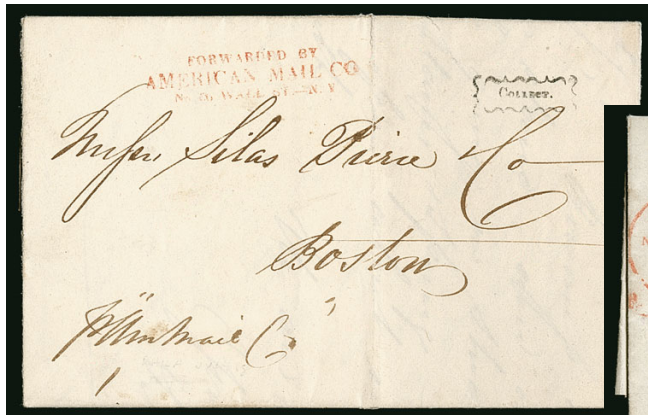 FORWARDED BY
AMERICAN MAIL CO
WALL ST. N.Y
COLLECT.
Messrs Silas Pierce & Co
Boston
Am Mail Co